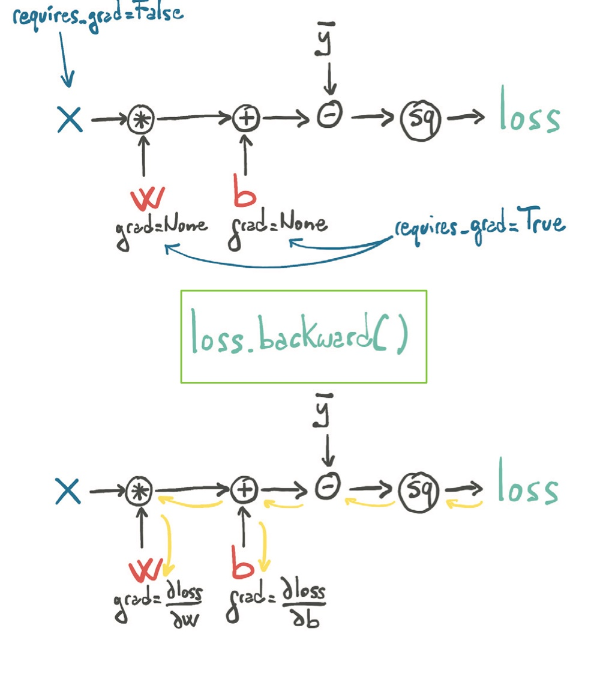 requires_grad=False
ȳ
X → * → + → - → sq → loss
w b
grad=None grad=None requires_grad=True
loss.backward()
ȳ
X → * → + → - → sq → loss
w b
grad=∂loss/∂w grad=∂loss/∂b